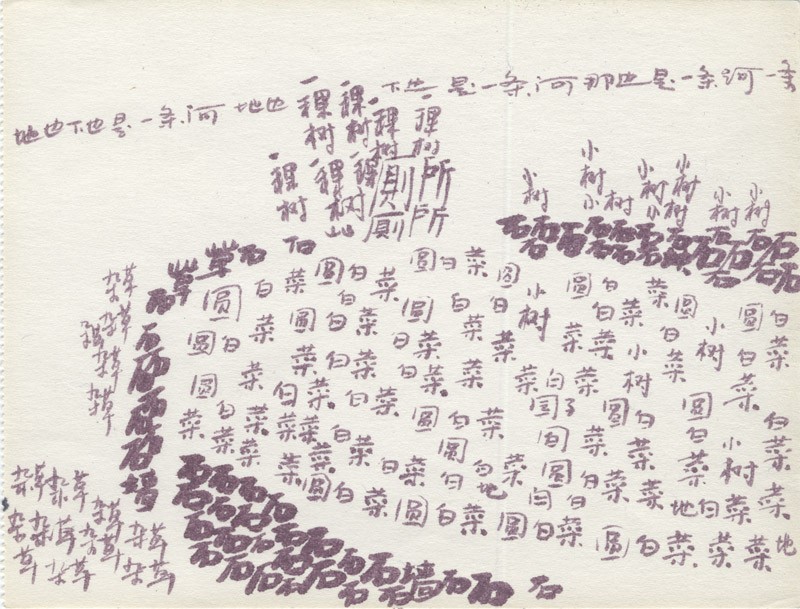 地也下也是一条河 地也 下也是一条河那也是一条河一条
一稞树 一稞树 一稞树 一稞树
一稞树 一稞树 一稞树
厕所
厕所
小树 小树 小树 小树 小树 小树 小树
石石石石石石石石石石石石石石石
草草石 石
杂草 杂草 杂草 杂草
石石石石石墙
圆白菜 圆白菜 圆白菜 圆白菜 圆白菜 圆白菜
圆白菜 圆白菜 圆白菜 小树 圆白菜 小树
圆白菜 白菜 白菜 白菜 小树 白菜
圆白菜 白菜 白菜 圆白菜 圆白菜 圆白菜 小树 白菜
菜 白菜 圆白菜 圆白菜 白地 白菜 地白菜
圆白菜 圆白菜 圆白菜 圆白菜 菜 地
杂草 杂草 杂草 杂草 杂草 杂草 杂草 杂草
石石石石
石石石石
石石石石石石
石石石石石石墙石石 石